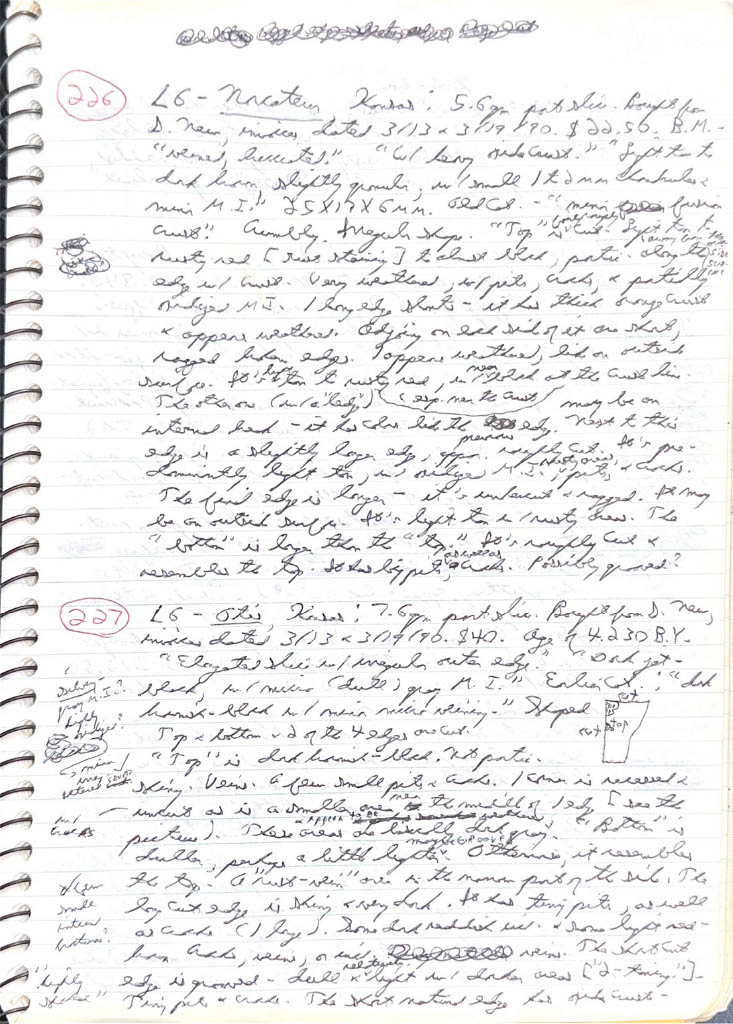 226 L6 - Norcateur Kansas: 5.6gm part slice. Bought from
D. New, invoices dated 3/13 & 3/19/90. $22.50. B.M. -
"veined, brecciated." "W/ heavy oxide crust." "Light tan to
dark brown, slightly granular, w/ small 1 to 2mm chondrules &
minor M.I." 25X17X6mm. Old Cat. - "minor fusion
crust." Crumbly. Irregular shape. "Top" is cut. Light tan to
rusty red [rust staining] to almost black, partic. along the
edge w/ crust. Very weathered, w/ pits, cracks, & partially
oxidized M.I. 1 long edge slants - it has thick orange crust
& appears weathered. Adjoining on each side of it are short,
ragged broken edges. 1 appears weathered, like an outside
surface. It's light tan to rusty red, w/ near black at the crust line.
The other one (w/ a "ledge") (esp. near the crust) may be an
internal break - it has color like the previous edge. Next to this
edge is a slightly longer edge, appar. roughly cut. It's pre-
dominantly light tan, w/ oxidized M.I., rusty areas, pits, & cracks.
The final edge is longer - it's undercut & ragged. It may
be an outside surface. It's light tan w/ rusty areas. The
"bottom" is larger than the "top." It's roughly cut &
resembles the top. It has big pits, as well as cracks. Possibly ground?
227 L6 - Otis, Kansas: 7.6gm part slice. Bought from D. New,
invoices dated 3/13 & 3/19/90. $40. Age of 4.230 B.Y.
"Elongated slice w/ irregular outer edge." "Dark jet-
black, w/ micro (dull) gray M.I." Earlier Cat.: "dark
silvery-
gray M.I.?
highly
oxidized?
brownish-black w/ minor micro veining." Shaped
cut
cut
top
Top & bottom & 2 of the 4 edges are cut.
"Top" is dark brownish-black. Not partic.
shiny. Veins. A few small pits & cracks. 1 corner is recessed &
uncut as is a smaller area near the middle of 1 edge [see the
picture]. These areas are basically dark gray. "Bottom" is
w/
cracks
duller, perhaps a little lighter. Otherwise, it resembles
maybe GROOVED
the top. A "rust-vein" area in the narrow part of the side. The
a few
small
long cut edge is shiny & very dark. It has tiny pits, as well
as cracks (1 large). Some dark reddish incl. & some light red-
brown cracks, veins, or incl. veins. The short cut
edge is ground - dull & relatively light w/ darker areas ["2-toning"] -
"highly
Tiny pits & cracks. The short natural edge has oxide crust -